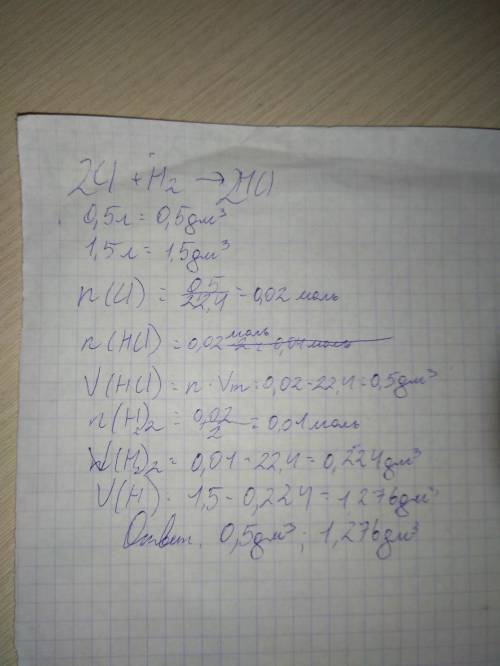 2Cl + H₂ → 2HCl
0,5л = 0,5дм³
1,5л = 1,5дм³
n(Cl) = 0,5/22,4 = 0,02 моль
n(HCl) = 0,02 моль
V(HCl) = n · Vm = 0,02 · 22,4 = 0,5дм³
n(H)₂ = 0,02/2 = 0,01 моль
V(H)₂ = 0,01 · 22,4 = 0,224дм³
V(H) = 1,5 - 0,224 = 1,276дм³
Ответ. 0,5дм³; 1,276дм³